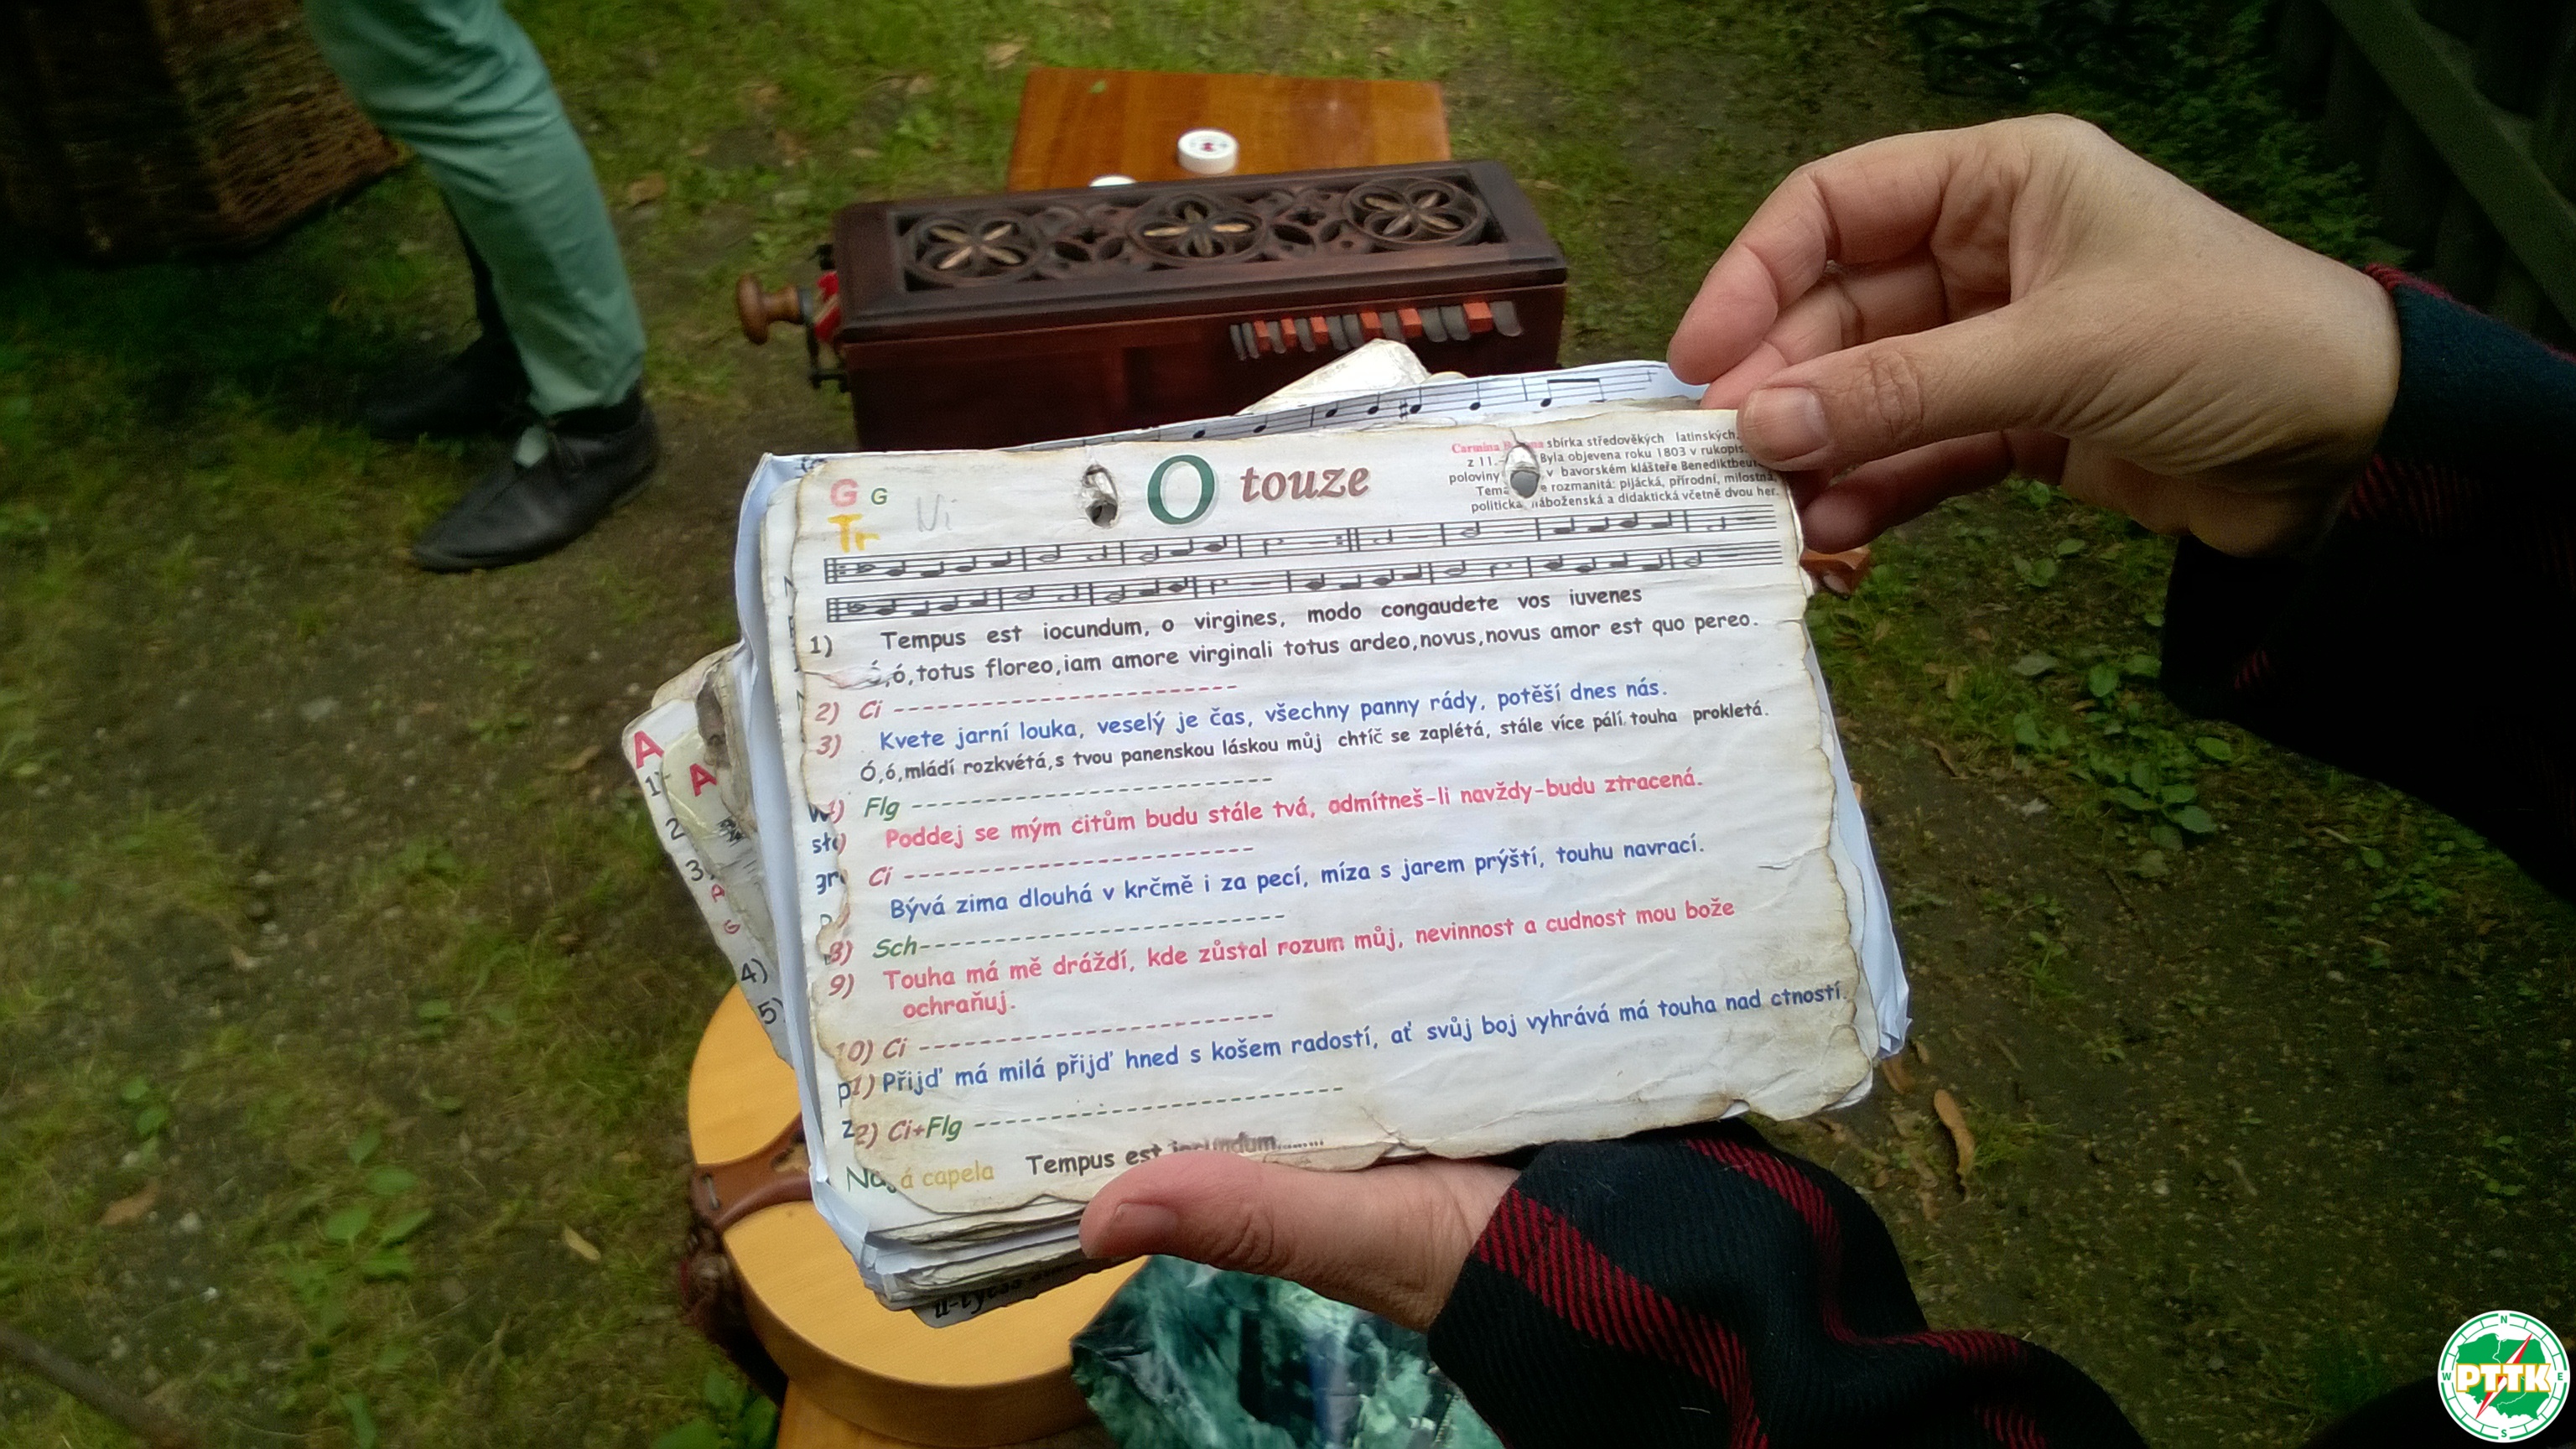 G G
O touze
Carmina sbírka středověkých latinských
z 11. Byla objevena roku 1803 v rukopis
poloviny v bavorském klášteře Benediktbeu
rozmanitá: pijácká, přírodní, milostná,
politická, náboženská a didaktická včetně dvou her.
Tr
1) Tempus est iocundum, o virgines, modo congaudete vos iuvenes
Ó,ó,totus floreo,iam amore virginali totus ardeo,novus,novus amor est quo pereo.
2) Ci
3) Kvete jarní louka, veselý je čas, všechny panny rády, potěší dnes nás.
Ó,ó,mládí rozkvétá,s tvou panenskou láskou můj chtíč se zaplétá, stále více pálí touha prokletá.
Flg
Poddej se mým citům budu stále tvá, odmítneš-li navždy-budu ztracená.
Ci
Bývá zima dlouhá v krčmě i za pecí, míza s jarem prýští, touhu navrací.
8) Sch
9) Touha má mě dráždí, kde zůstal rozum můj, nevinnost a cudnost mou bože
ochraňuj.
10) Ci
Přijď má milá přijď hned s košem radostí, ať svůj boj vyhrává má touha nad ctností.
2) Ci+Flg
á capela Tempus est
A
1)
2
3.
4)
5)
A
PTTK
N
E
S
W